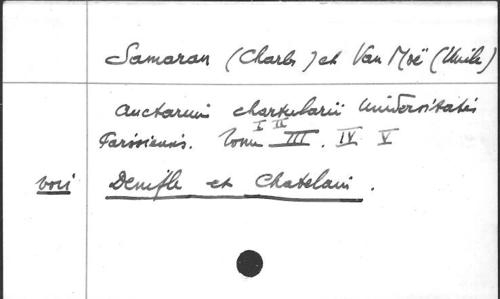 Samaran (Charles) et Van Moë (Emile)
Auctarium chartularii Universitatis
Parisiensis. Tome I II III. IV V
voir Denifle et Chatelain.